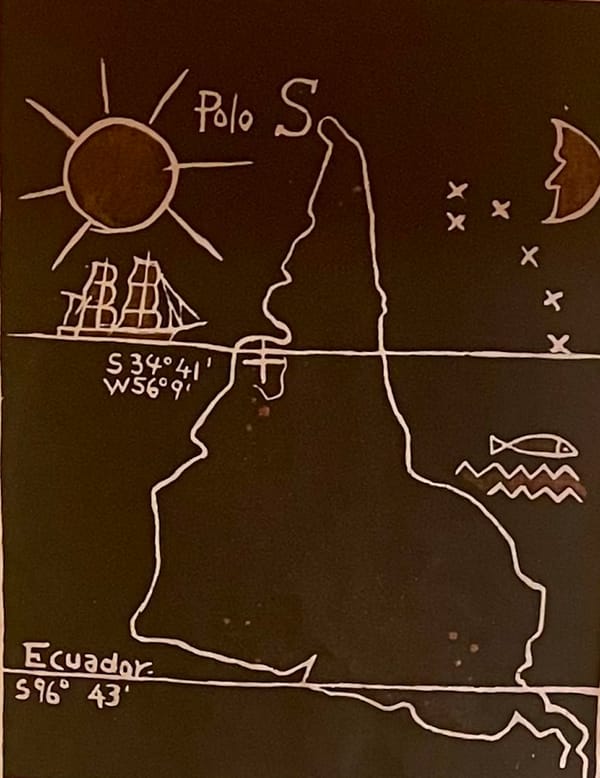 Polo S.
S 34° 41'
W 56° 9'
Ecuador.
S 96° 43'